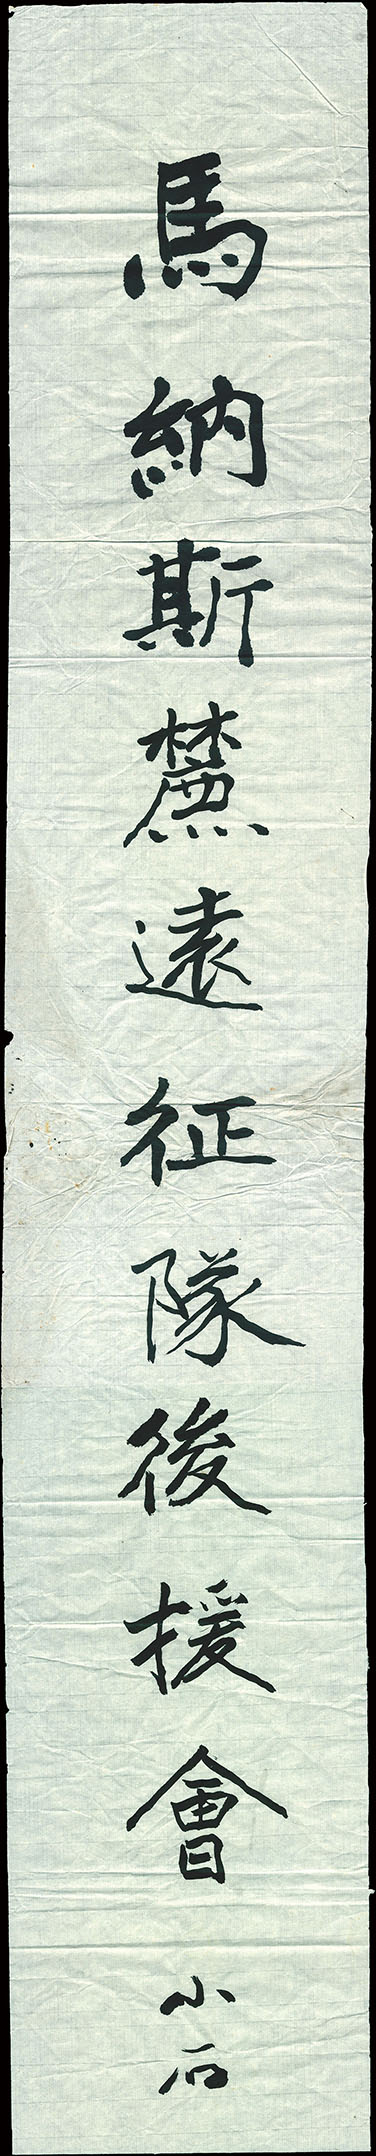 馬納斯麓遠征隊後援會小石